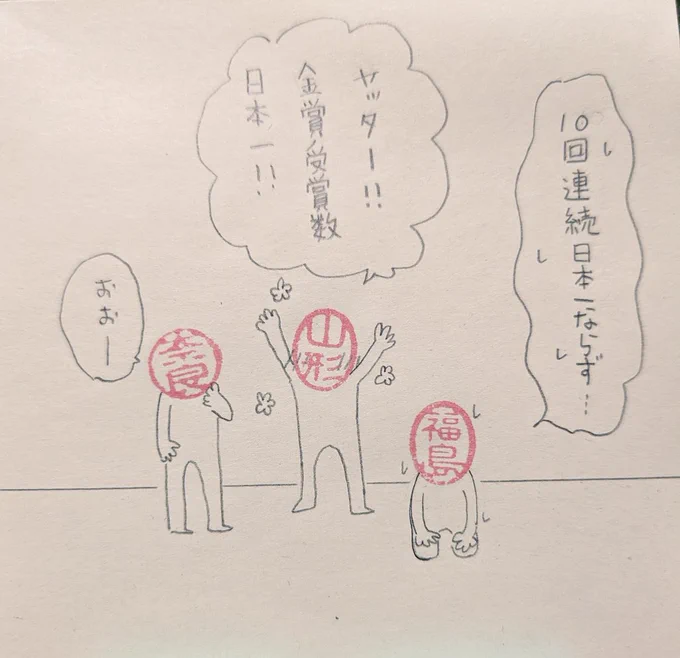 10回連続日本一ならず…
ヤッター!!
金賞受賞数
日本一!!
おおー
山形
奈良
福島